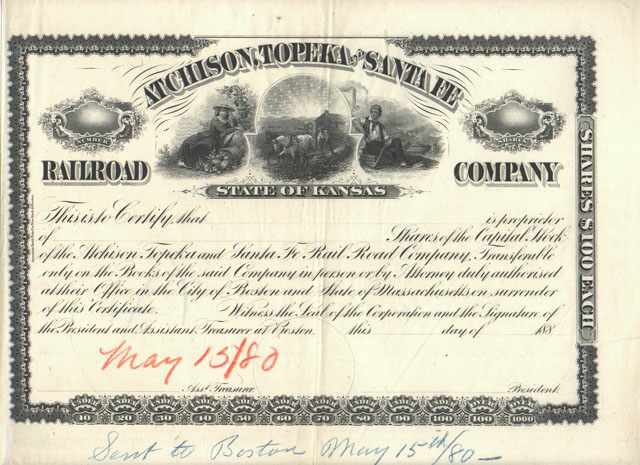 ATCHISON, TOPEKA AND SANTA FE
NUMBER
SHARES
RAILROAD COMPANY
STATE OF KANSAS
SHARES $100 EACH
This is to Certify, that is proprietor
of Shares of the Capital Stock
of the Atchison Topeka and Santa Fe Rail Road Company, Transferable
only on the Books of the said Company in person or by Attorney duly authorised
at their Office in the City of Boston and State of Massachusetts on surrender
of this Certificate. Witness the Seal of the Corporation and the Signature of
the President and Assistant Treasurer at Boston. this day of 188
May 15/80
Asst. Treasurer. President.
10 20 30 40 50 60 70 80 90 100 100 1000
Sent to Boston May 15th/80-